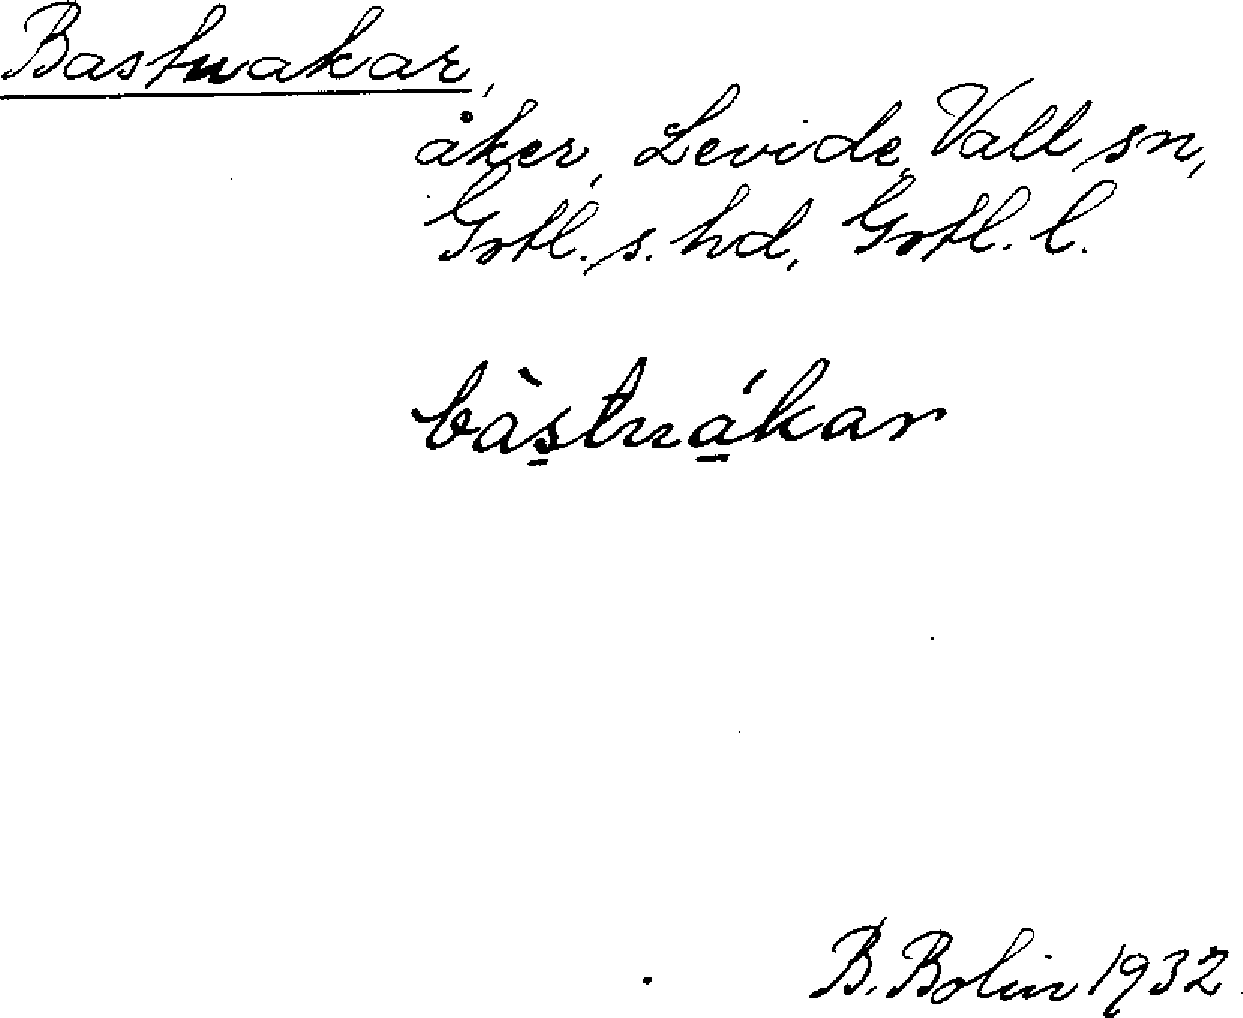 Bastnakar,
åker, Levide, Vall sn,
Gotl. s. hd, Gotl. l.
bàs̠tná̠kar
B. Bolin 1932